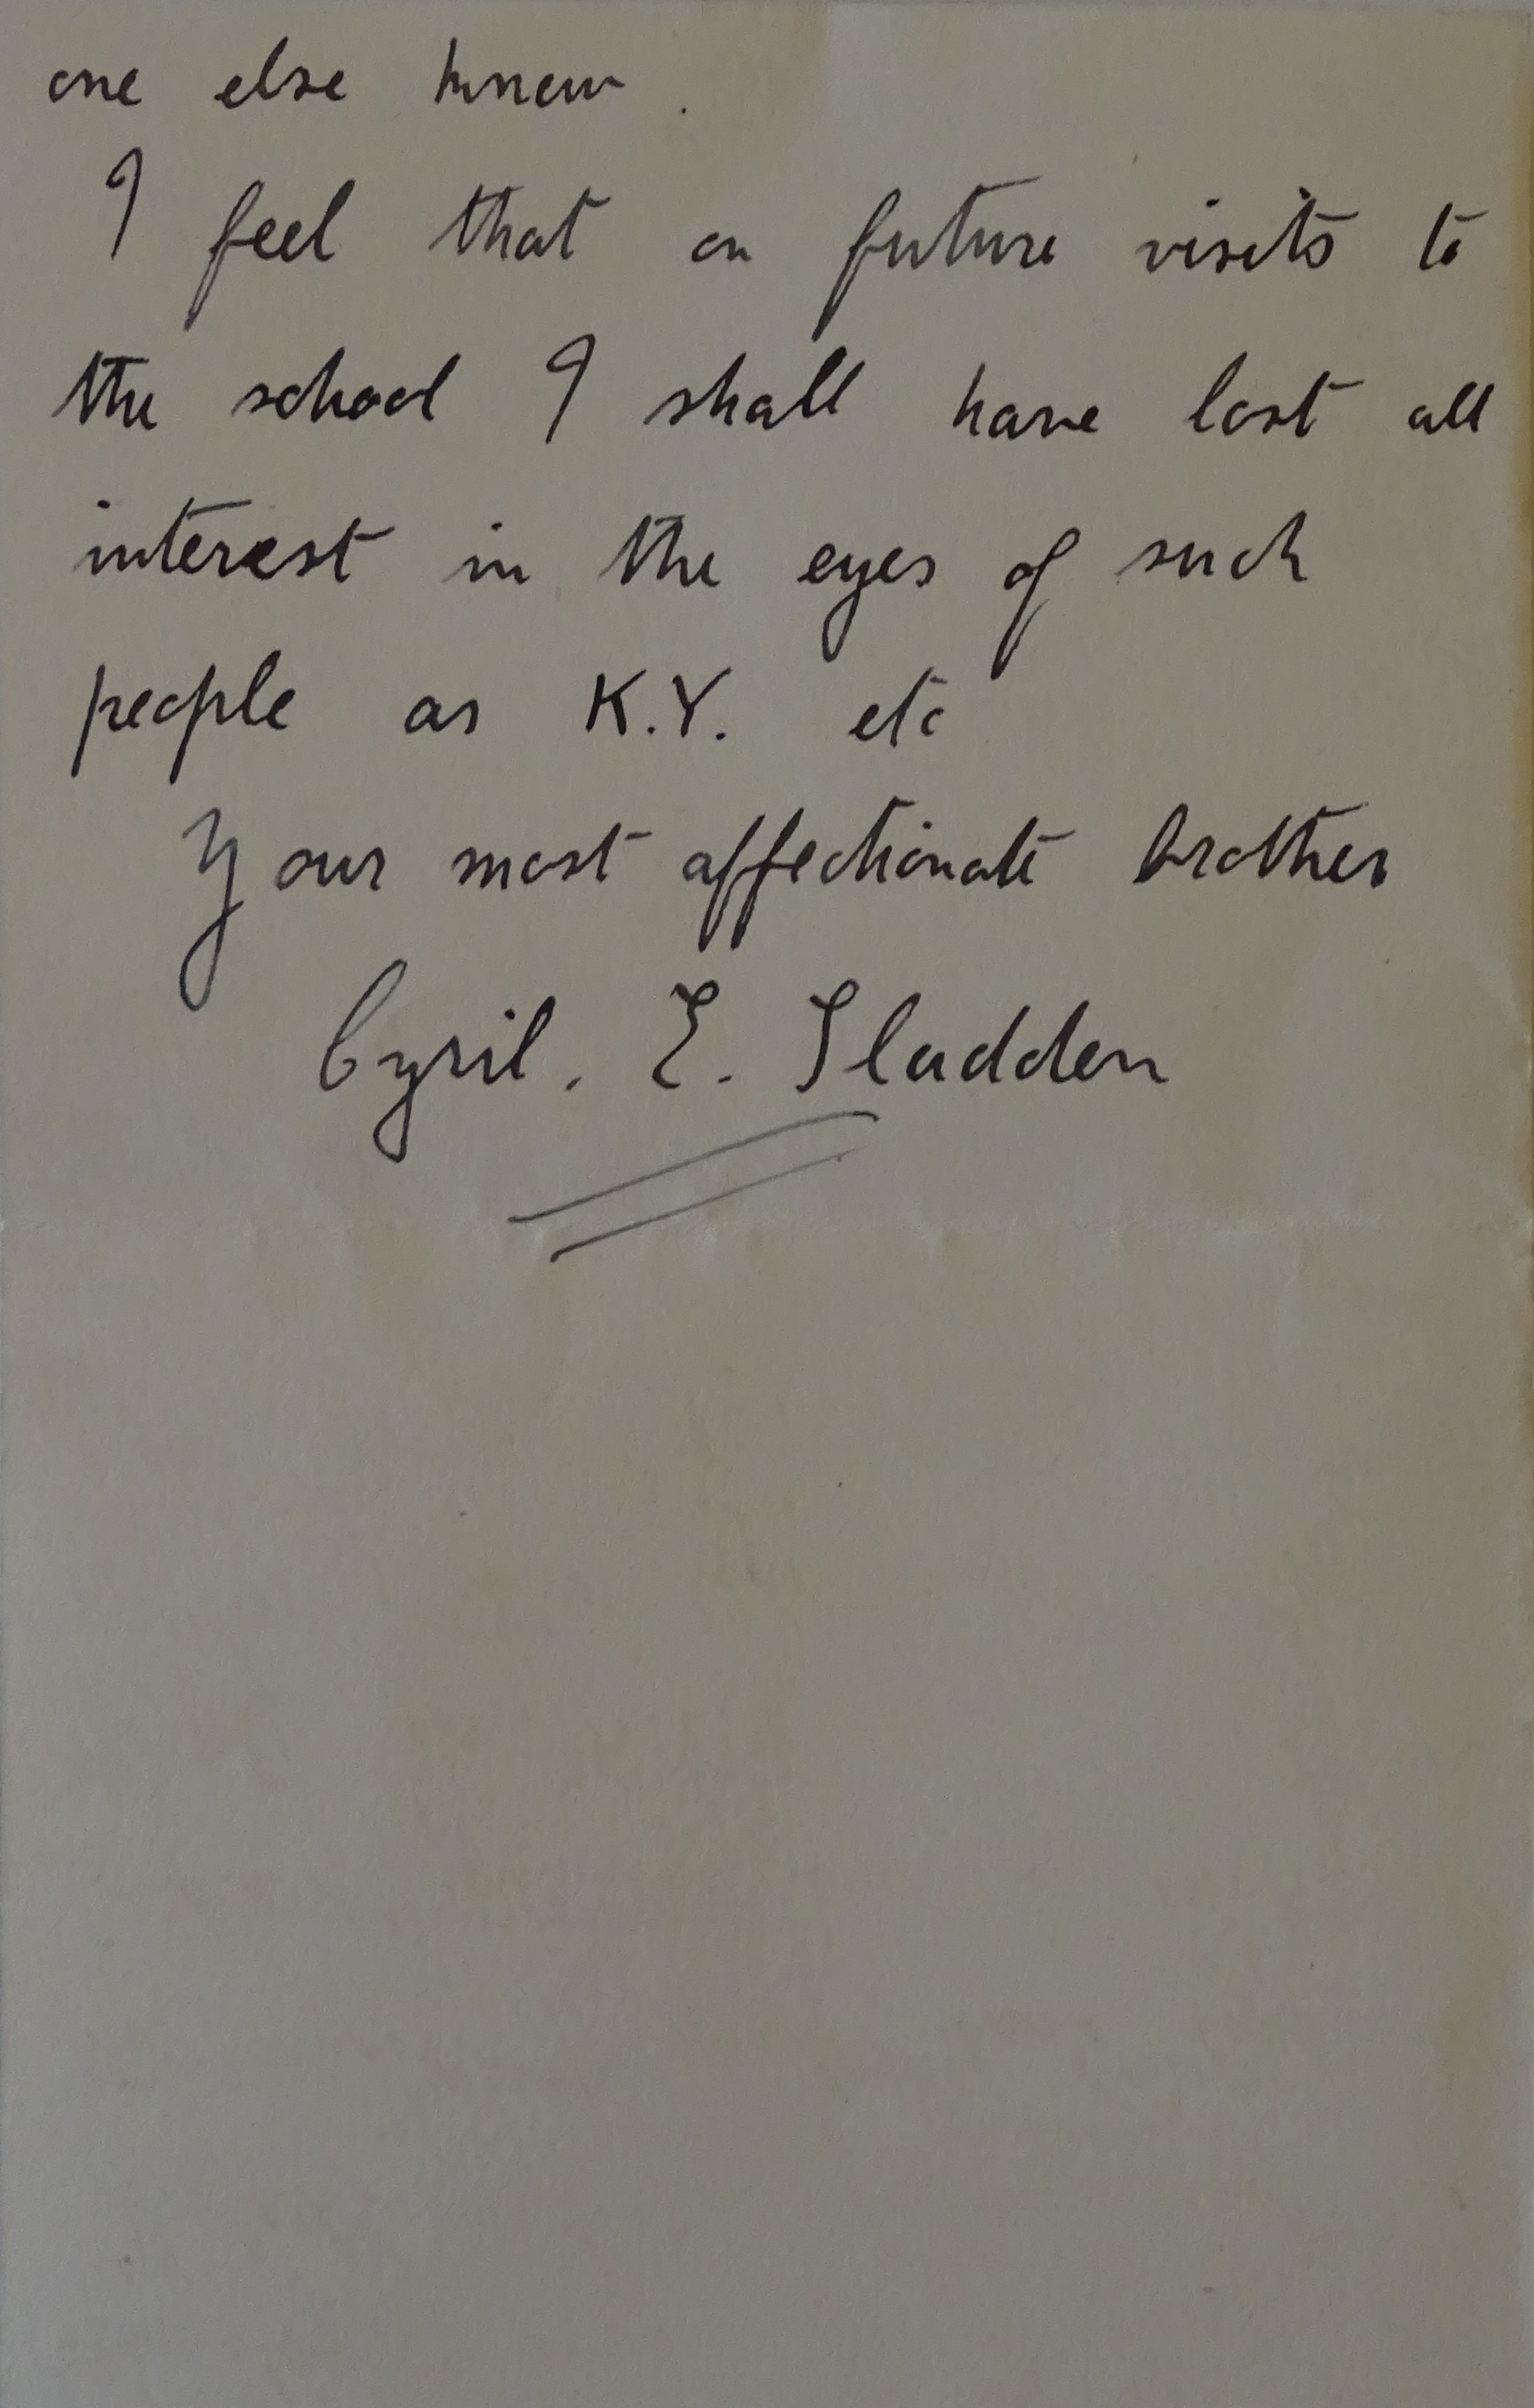 one else knew.
I feel that on future visits to
the school I shall have lost all
interest in the eyes of such
people as K.Y. etc
Your most affectionate brother
Cyril. E. Sladden